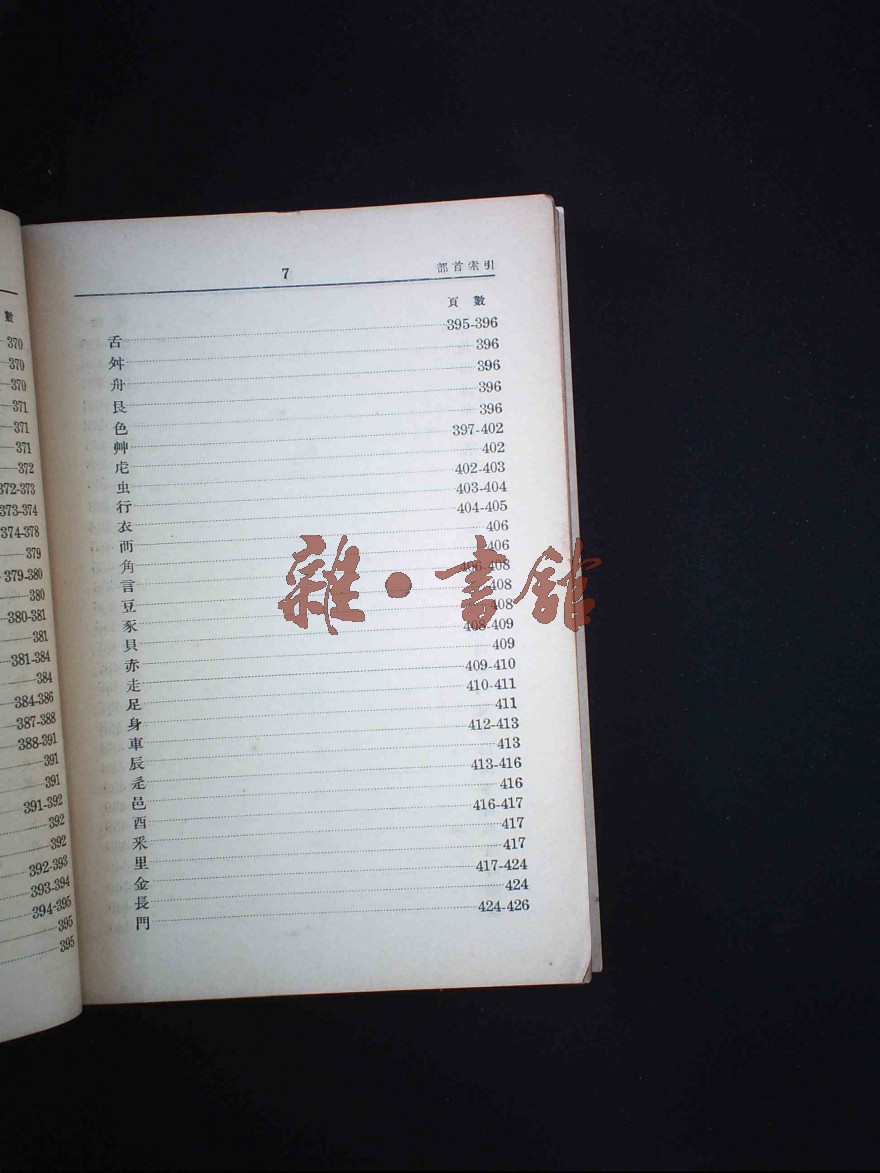 數
370
370
370
371
371
371
372
372-373
373-374
374-378
379
379-380
380
380-381
381
381-384
384
384-386
387-388
388-391
391
391
391-392
392
392
392-393
393-394
394-395
395
395
7 部首索引
頁數
舌 395-396
舛 396
舟 396
艮 396
色 396
艸 397-402
虍 402
虫 402-403
行 403-404
衣 404-405
襾 406
角 406
言 406-408
豆 408
豕 408
貝 408-409
赤 409
走 409-410
足 410-411
身 411
車 412-413
辰 413
辵 413-416
邑 416
酉 416-417
釆 417
里 417
金 417-424
長 424
門 424-426
雜·書館